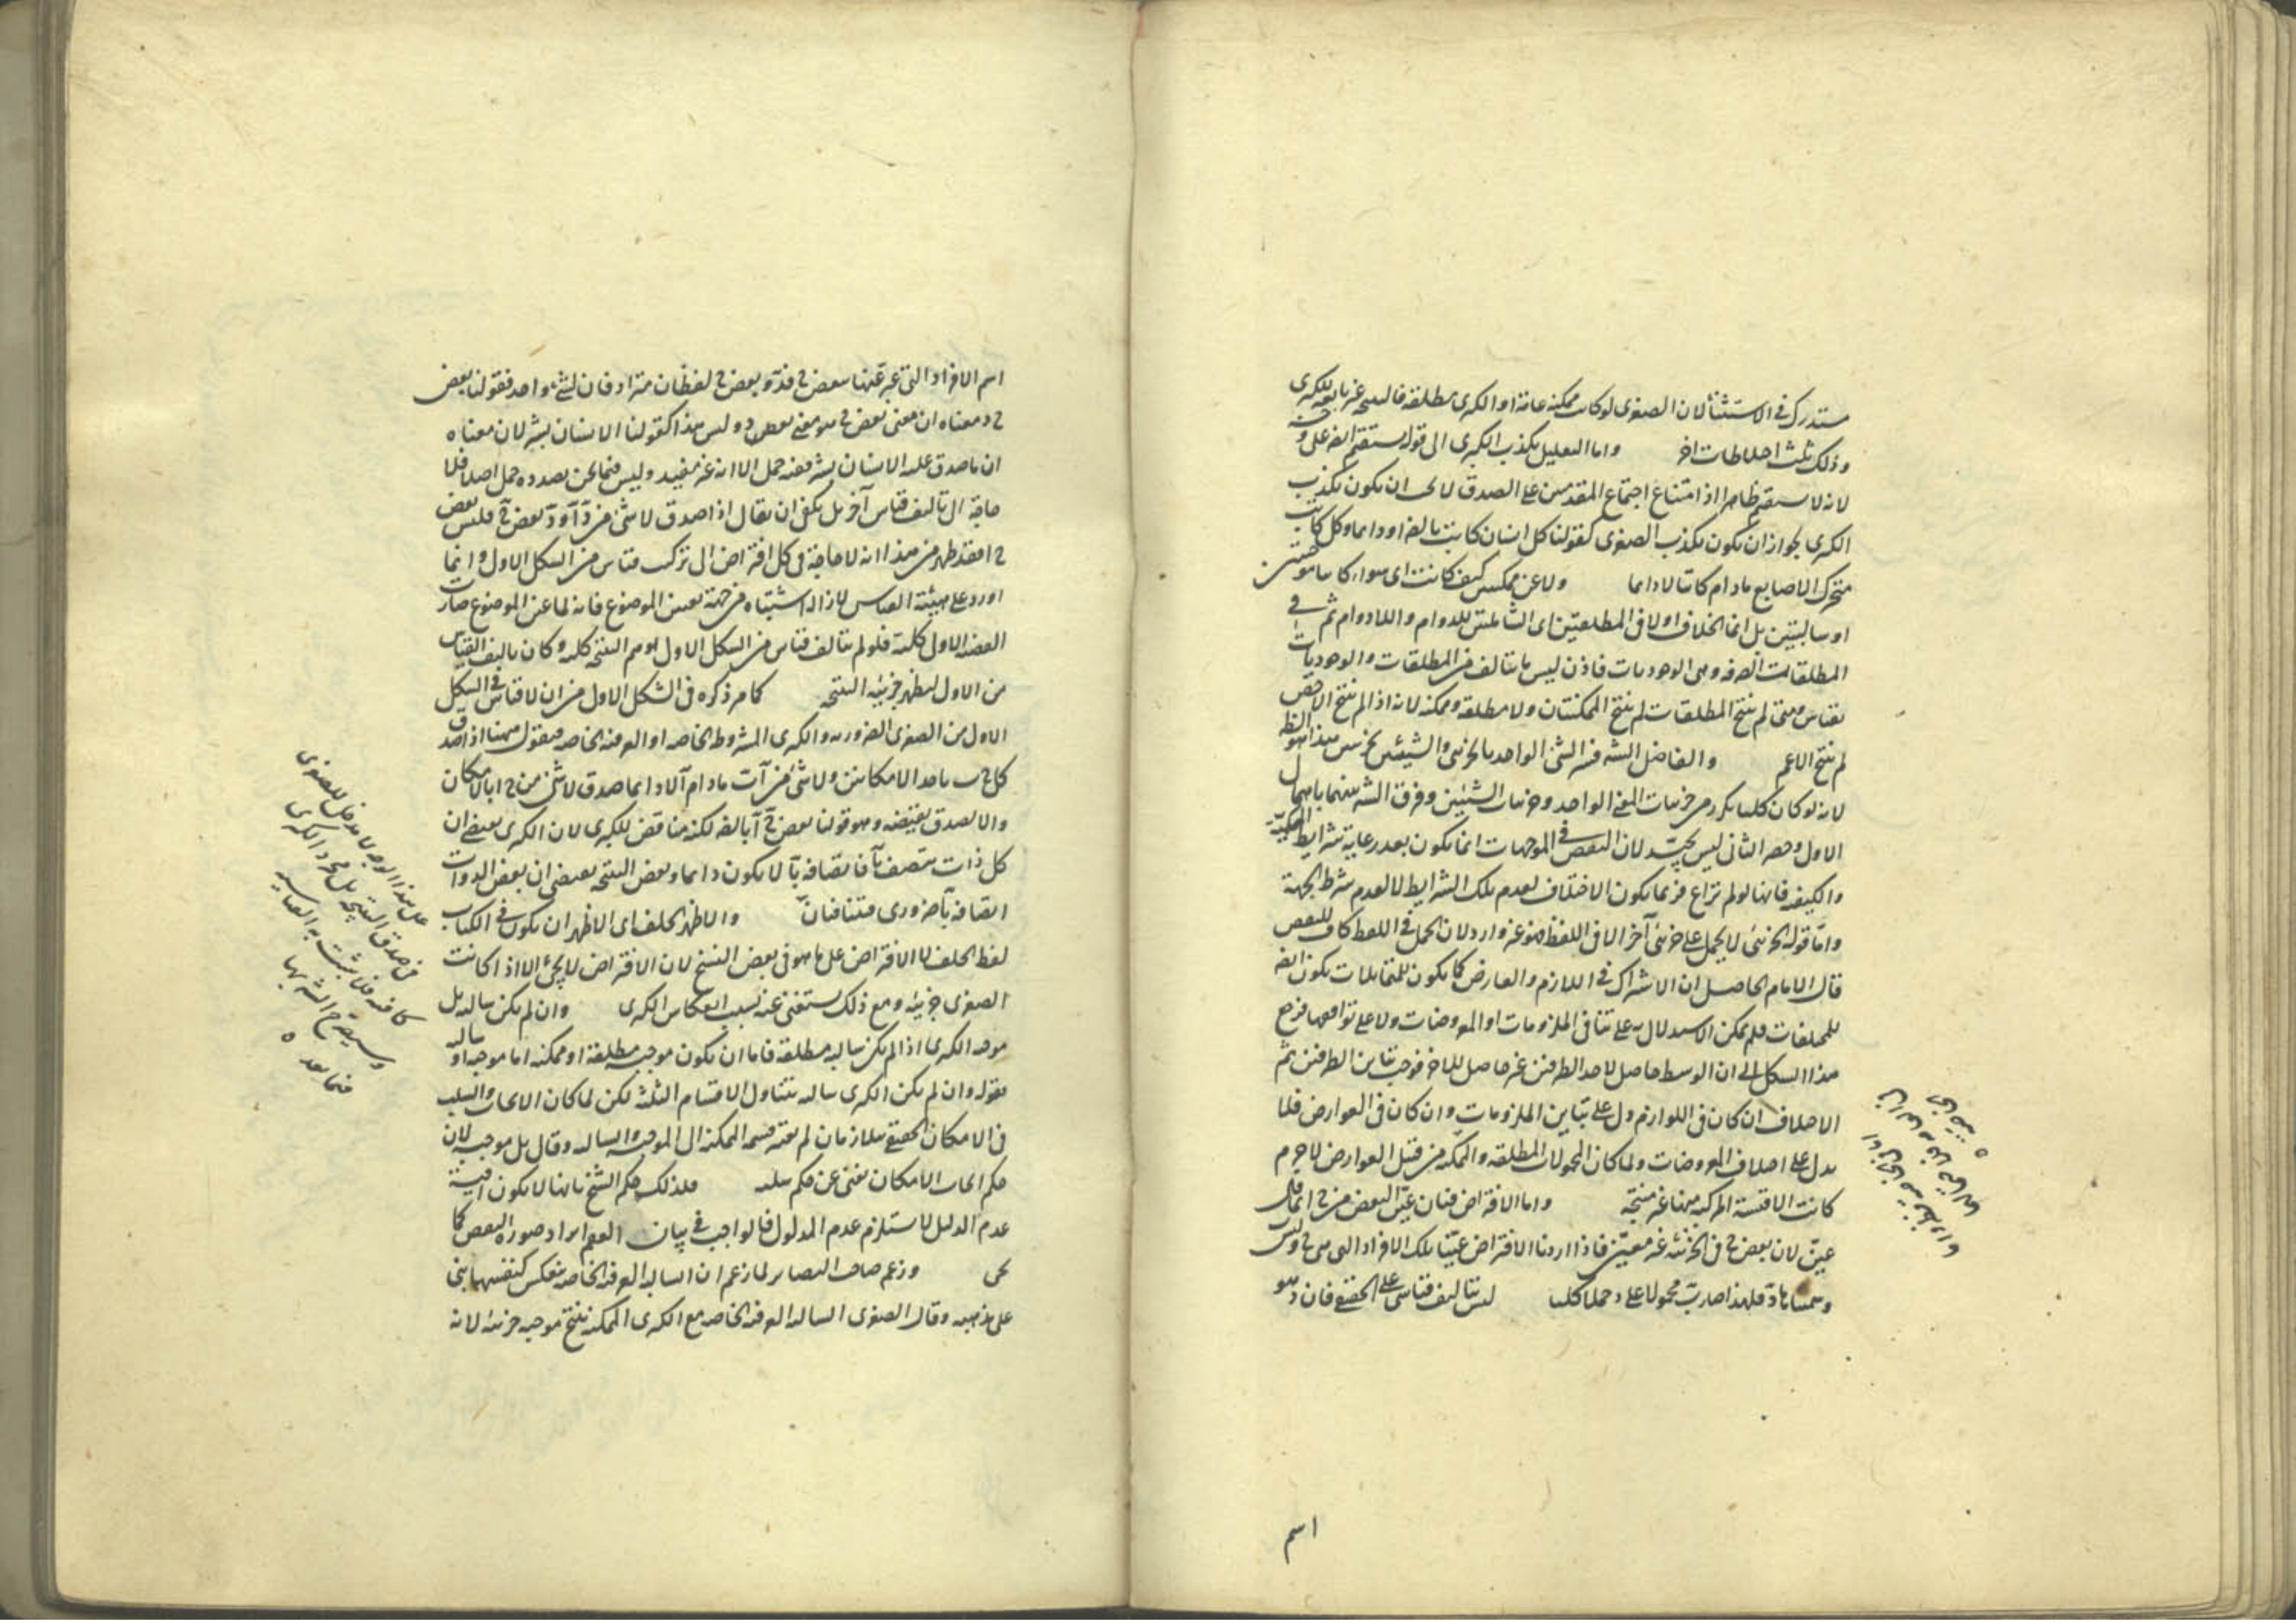 مستدرك فى الاستثنا لان الصغرى لو كانت ممكنه عامة او الكبرى مطلقة فالنتيجه غير تابعة للكبرى
وذلك ثلث اختلاطات اخر واما التعليل بكذب الكبرى الى قوله يستقيم ايضا على
لانه لا يستقيم ظاهرا اذ امتناع اجتماع المقدمتين على الصدق لا يجب ان يكون بكذب
الكبرى لجواز ان يكون بكذب الصغرى كقولنا كل انسان كاتب بالضـ او دايما وكل كاتب
متحرك الاصابع مادام كاتبا لا دايما ولا عن ممكنتين كيف كانتا اى سواء كانتا موجبتين
او سالبتين بل انما الخلاف اولا فى المطلقتين اى الشاملتين للدوام واللادوام ثم فى
المطلقات الصرفه وهى الوجوديات فاذن ليس ما يتالف من المطلقات والوجوديات
بقياس ومتى لم ينتج المطلقات لم ينتج الممكنتان ولا مطلقة وممكنه لانه اذا لم ينتج الاخص
لم ينتج الاعم والفاضل الشه فسر الشئ الواحد بالجزئى والشيئين بجزئيين هذا هو الظ
لانه لو كان كليا تكرر من جزئيات المعنى الواحد وجزئيات الشيئين وفرق الشه بينهما باهمال
الاول وحصر الثانى ليس بجيد لان النقص فى الموجهات انما يكون بعد رعاية شرايط الكمية
والكيفيه فانها لو لم تراع فربما يكون الاختلاف لعدم تلك الشرايط لا لعدم شرط الجهة
واما قوله الجزئى لا يحمل على جزئى آخر الا فى اللفظ فهو غير وارد لان الحمل فى اللفظ كاف للنقص
قال الامام الحاصل ان الاشتراك فى اللازم والعارض كما يكون للمتماثلات يكون ايضا
للمختلفات فلم يمكن الاستدلال به على تنافى الملزومات او المعروضات ولا على توافقها فرجع
هذا الشكل الى ان الوسط حاصل لاحد الطرفين غير حاصل للاخر فوجب تباين الطرفين ثم
الاختلاف ان كان فى اللوازم دل على تباين الملزومات وان كان فى العوارض فلا
يدل على اختلاف المعروضات ولما كان المحمولات المطلقه والممكنه من قبيل العوارض لا جرم
كانت الاقيسة المركبه منها غير منتجة واما الافتراض فبان عين البعض من ج انما قال
عين لان بعض ج فى الجزئيه غير معين فاذا اردنا الافتراض عينا تلك الافراد التى هى ج وليس
وسميناها د فلهذا صارت محمولا على د حملا كليا ليس يتالف قياس على الحقيقه فان د هو
اسم
اسم الافراد التى عبر عنها ببعض ج فد و بعض ج لفظان مترادفان لشئ واحد فقولنا بعض
ج د معناه ان معنى بعض ج هو معنى بعض د و ليس هذا كقولنا الانسان بشر لان معناه
ان ما صدق عليه الانسان بشر ففيه حمل الا انه غير مفيد وليس فيما نحن بصدده حمل اصلا فلا
حاجة الى تاليف قياس آخر بل يكفى ان يقال اذا صدق لا شئ من د آ و د بعض ج فليس بعض
ج ا فقد ظهر من هذا انه لا حاجة فى كل افتراض الى تركيب قياس من الشكل الاول وانما
اورد على هيئته القياس لازاله اشتباه من جهة تعيين الموضوع فانه لما عين الموضوع صارت
القضيه الاولى كليه فلو لم يتالف قياس من الشكل الاول لوهم النتيجه كليه وكان تاليف القياس
من الاول ليظهر جزئيه النتيجه كما مر ذكره فى الشكل الاول من ان لا قياس فى الشكل
الاول من الصغرى الضروريه والكبرى المشروطه الخاصه او العرفيه الخاصه فنقول ههنا اذا صدق
كل ج ب باحد الامكانين ولا شئ من آ ب مادام آ لا دايما صدق لا شئ من ج ا بالامكان
والا لصدق نقيضه وهو قولنا بعض ج آ بالضـ لكنه مناقض للكبرى لان الكبرى يقتضى ان
كل ذات يتصف بآ فاتصافه بآ لا يكون دايما ونقيض النتيجه يقتضى ان بعض الذوات
اتصافه بآ ضرورى متنافيان والاظهر الخلف اى الاظهر ان يكون فى الكتاب
لفظ الخلف لا الافتراض على ما هو فى بعض النسخ لان الافتراض لا يجئ الا اذا كانت
الصغرى جزئيه ومع ذلك يستغنى عنه بسبب انعكاس الكبرى وان لم يكن سالبه بل
موجبه الكبرى اذا لم يكن سالبه مطلقة فاما ان يكون موجبه مطلقة او ممكنه اما موجبه او سالبه
فقوله وان لم يكن الكبرى سالبه يتناول الاقسام الثلثه لكن لما كان الايجاب والسلب
فى الامكان الحقيقى متلازمان لم يعتبر قسمه الممكنه الى الموجبه والسالبه وقال بل موجبه لان
حكم ايجاب الامكان يغنى عن حكم سلبه فلذلك حكم الشيخ بانها لا يكون اقيسة
عدم الدليل لا يستلزم عدم المدلول فالواجب فى بيان العقم ايراد صوره النقص كما
نحن وزعم صاحب البصاير لما زعم ان السالبه العرفيه الخاصه ينعكس كنفسها بنى
على مذهبه وقال الصغرى السالبه العرفيه الخاصه مع الكبرى الممكنه ينتج موجبه جزئيه لانه
على هذا الوجه لا مدخل للصغرى
فى صدق النتيجه بل مجرد الكبرى
كافيه فلا يثبت به القياسيه
وسيصرح الشه بها
فيما بعد ه